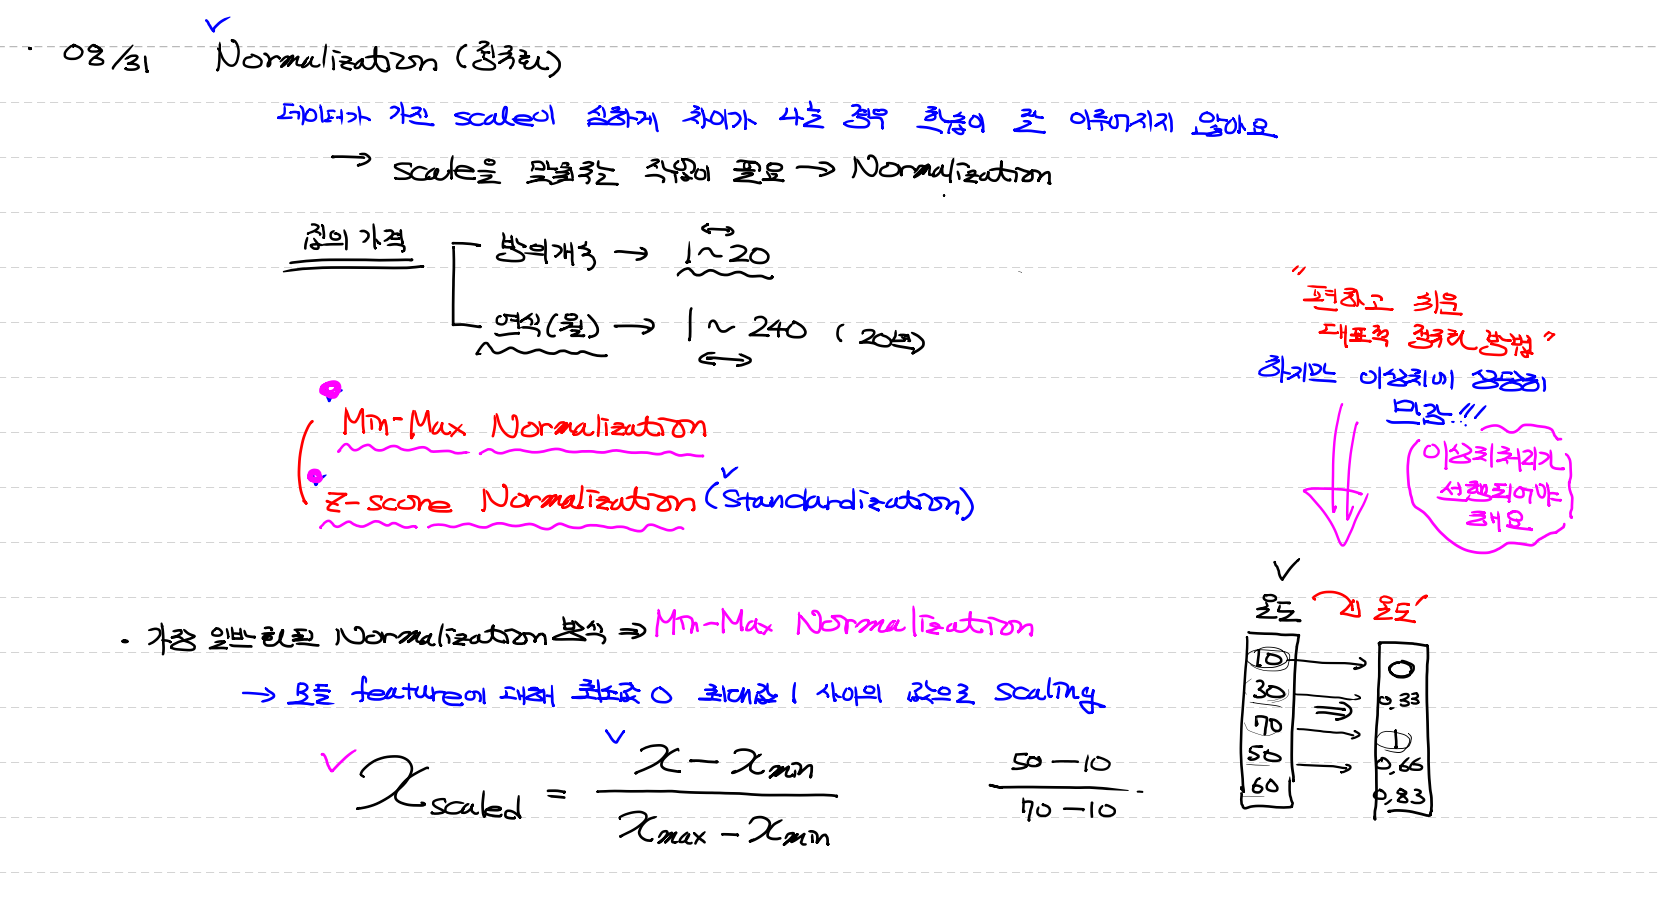 08/31 Normalization (정규화)
데이터가 가진 scale이 심하게 차이가 나는 경우 학습이 잘 이루어지지 않아요
→ scale을 맞춰주는 작업이 필요 → Normalization
집의 가격
방의개수 → 1~20
연식(월) → 1 ~ 240 (20년)
"편하고 쉬운
대표적 정규화 방법"
하지만 이상치에 상당히
민감!!!
이상치처리가
선행되어야
해요
Min-Max Normalization
Z-score Normalization (Standardization)
· 가장 일반화된 Normalization 방식 ⇒ Min-Max Normalization
→ 모든 feature에 대해 최소값 0 최대값 1 사이의 값으로 scaling
x scaled = (x - x min) / (x max - x min)
50 - 10
70 - 10
온도 온도'
10 → 0
30 → 0.33
70 → 1
50 → 0.66
60 0.83